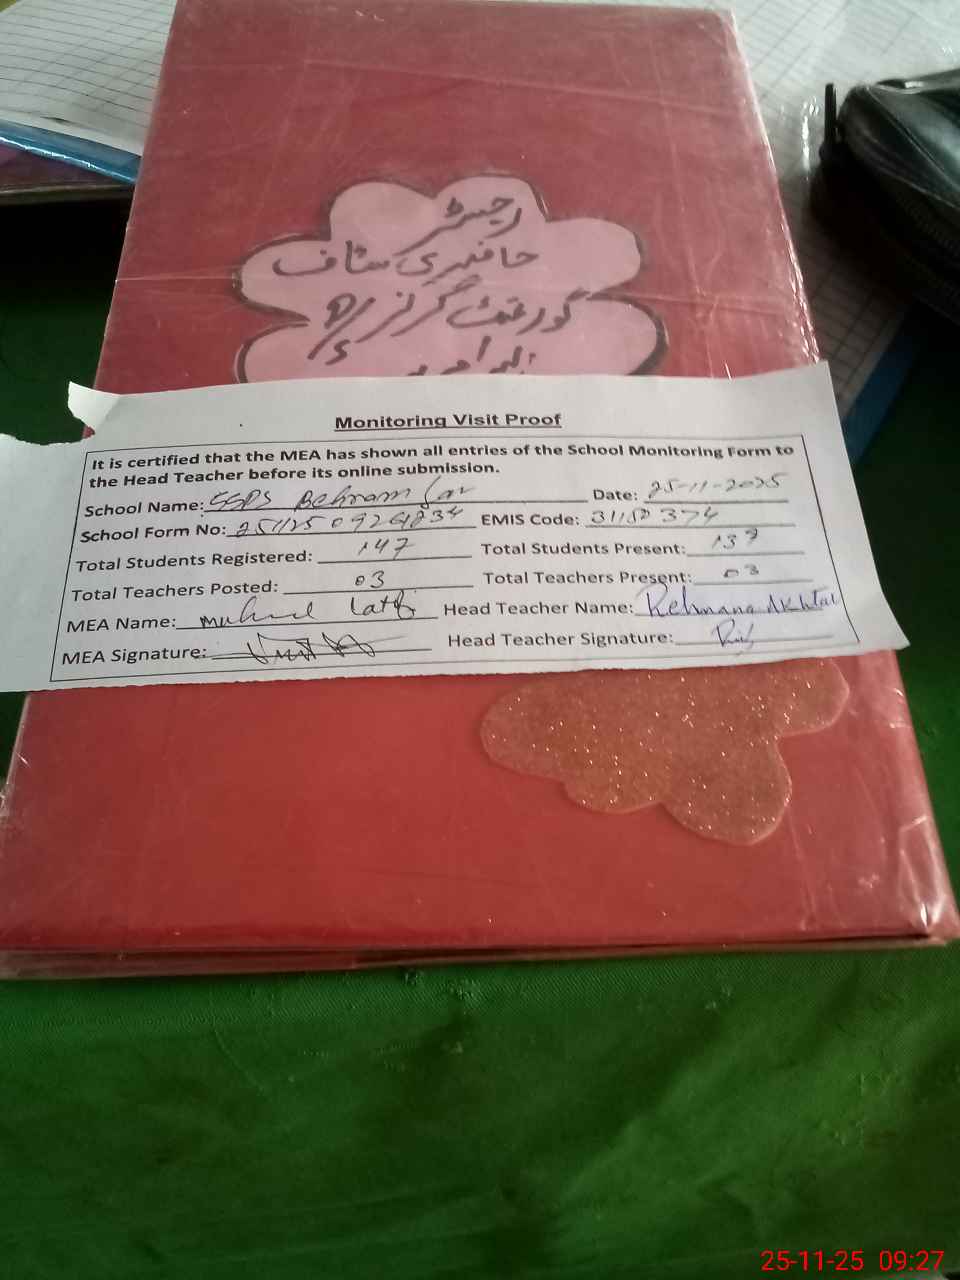 رجسٹر
حاضری سٹاف
گورنمنٹ گرلز پرا
Monitoring Visit Proof
It is certified that the MEA has shown all entries of the School Monitoring Form to
the Head Teacher before its online submission.
School Name: GGPS Behram Date: 25-11-2025
School Form No: EMIS Code:
Total Students Registered: 147 Total Students Present: 137
Total Teachers Posted: 03 Total Teachers Present: 03
MEA Name: Head Teacher Name: Rehmana Akhtar
MEA Signature: Head Teacher Signature:
25-11-25 09:27